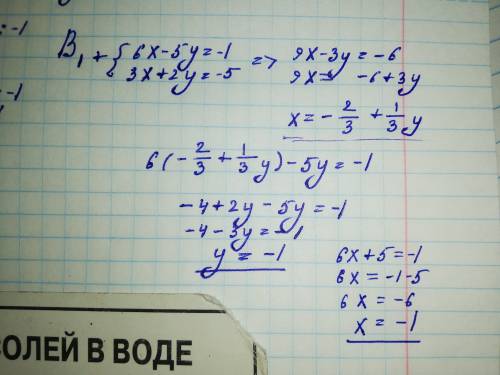 B₁ + { 6x-5y=-1 => 9x-3y=-6
3x+2y=-5 9x= -6+3y
x = - 2/3 + 1/3 y
6(- 2/3 + 1/3 y) - 5y = -1
-4+2y-5y=-1
-4-3y=-1
y = -1
6x+5=-1
6x=-1-5
6x=-6
x=-1
ОЛЕЙ В ВОДЕ